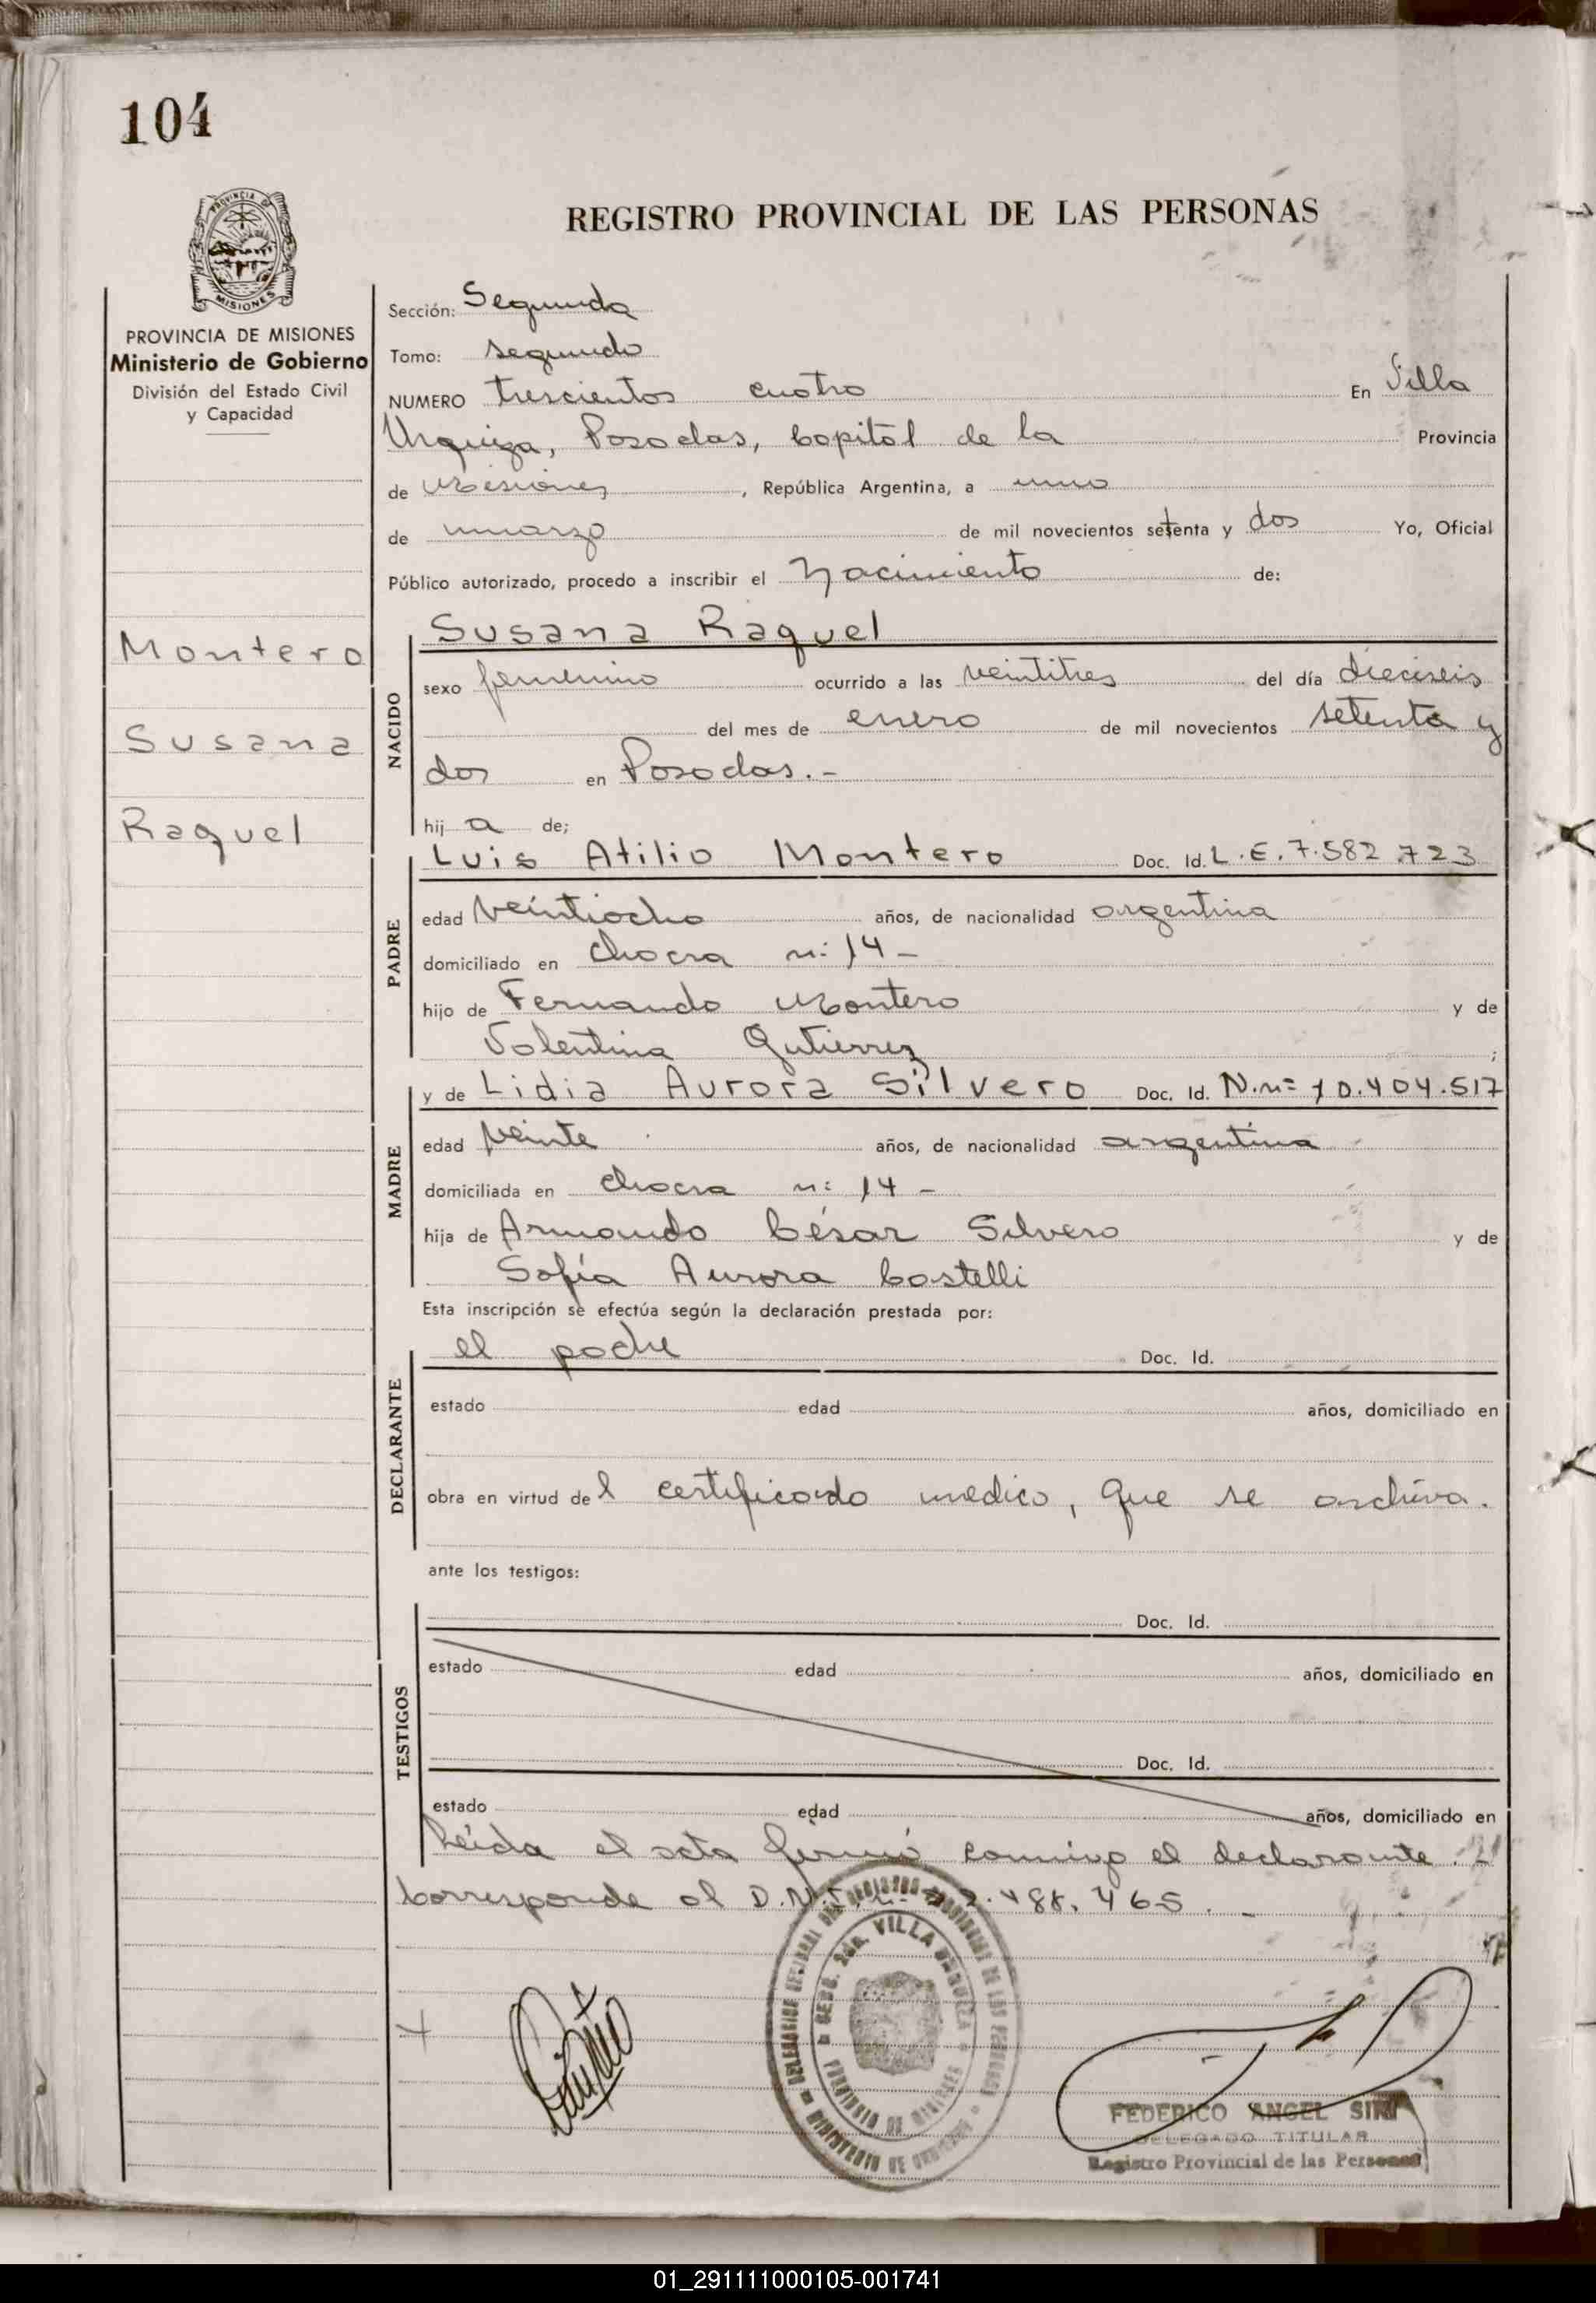 104
REGISTRO PROVINCIAL DE LAS PERSONAS
PROVINCIA DE MISIONES
Ministerio de Gobierno
División del Estado Civil
y Capacidad
Montero
Susana
Raquel
Sección: Segunda
Tomo: segundo
NUMERO trescientos cuatro En Villa
Urquiza, Posadas, Capital de la Provincia
de Misiones, República Argentina, a uno
de marzo de mil novecientos setenta y dos Yo, Oficial
Público autorizado, procedo a inscribir el Nacimiento de:
NACIDO
Susana Raquel
sexo femenino ocurrido a las veintitres del día dieciseis
del mes de enero de mil novecientos setenta y
dos en Posadas.-
hij a de;
PADRE
Luis Atilio Montero Doc. Id. L.E. 7.582.723
edad veintiocho años, de nacionalidad argentina
domiciliado en chacra n: 14-
hijo de Fernando Montero y de
Valentina Gutierrez ;
MADRE
y de Lidia Aurora Silvero Doc. Id. N.n= 10.404.517
edad veinte años, de nacionalidad argentina
domiciliada en chacra n: 14-
hija de Armando César Silvero y de
Sofía Aurora Costelli
Esta inscripción se efectúa según la declaración prestada por:
DECLARANTE
el padre Doc. Id.
estado edad años, domiciliado en
obra en virtud del certificado medico, que se archiva.
ante los testigos:
TESTIGOS
Doc. Id.
estado edad años, domiciliado en
Doc. Id.
estado edad años, domiciliado en
Leída el acta firmó conmigo el declarante.-
Corresponde al 488.465.-
SECC. 2da. VILLA URQUIZA
PROVINCIA DE MISIONES
FEDERICO ANGEL SIRI
DELEGADO TITULAR
Registro Provincial de las Personas
01_291111000105-001741